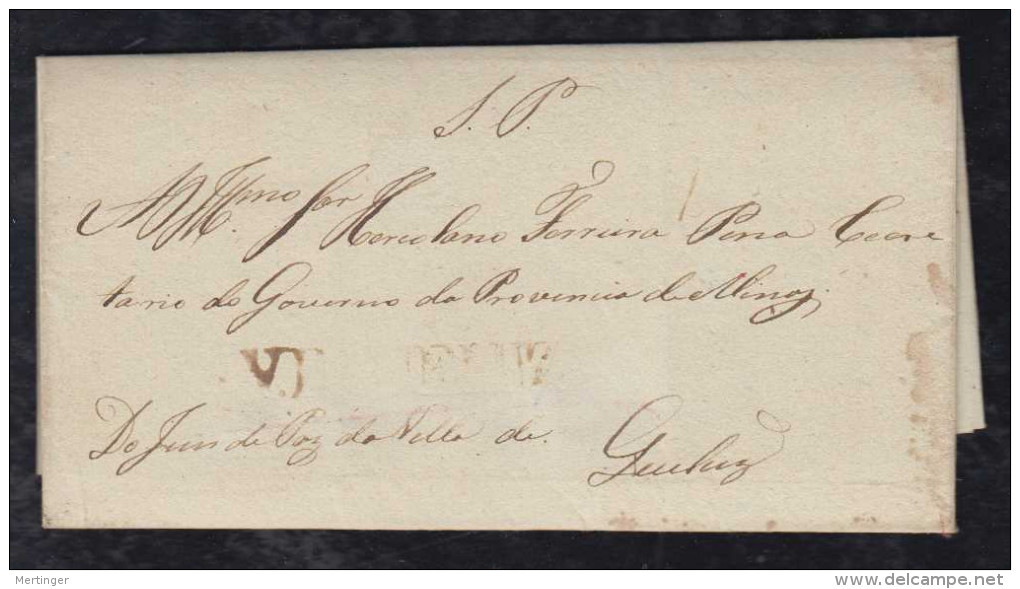 S. P.
Illmo Snr Herculano Ferreira Pena Secre
tario do Governo da Provincia de Minas.
Do Juis de Paz da Villa de. Queluz
Mertinger
www.delcampe.net